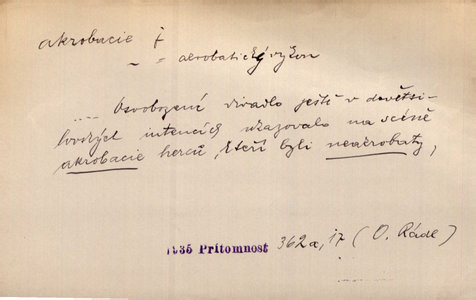 akrobacie f
" = acrobatický výkon
.... Osvobozené divadlo ještě v devětsi-
lovských intencích ukazovalo na scéně
akrobacie herců, kteří byli neakrobaty,
1935 Přítomnost 362a, 17 (O. Rádl)